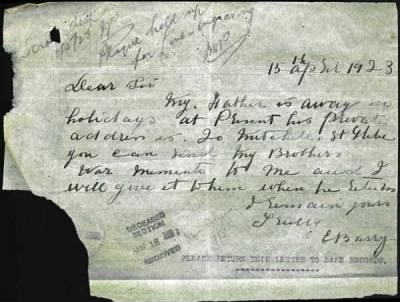 Plaque held up
for
15th April 1923
Dear Sir
My Father is away on
holidays at Present his private
address is. 20 Mitchell St Glebe
you can send My Brothers
War Memento to me and I
will give it to them when he
I Remain yours
Truly
E Barry
DECEASED
SECTION
RECEIVED
PLEASE RETURN THIS LETTER TO BASE RECORDS.